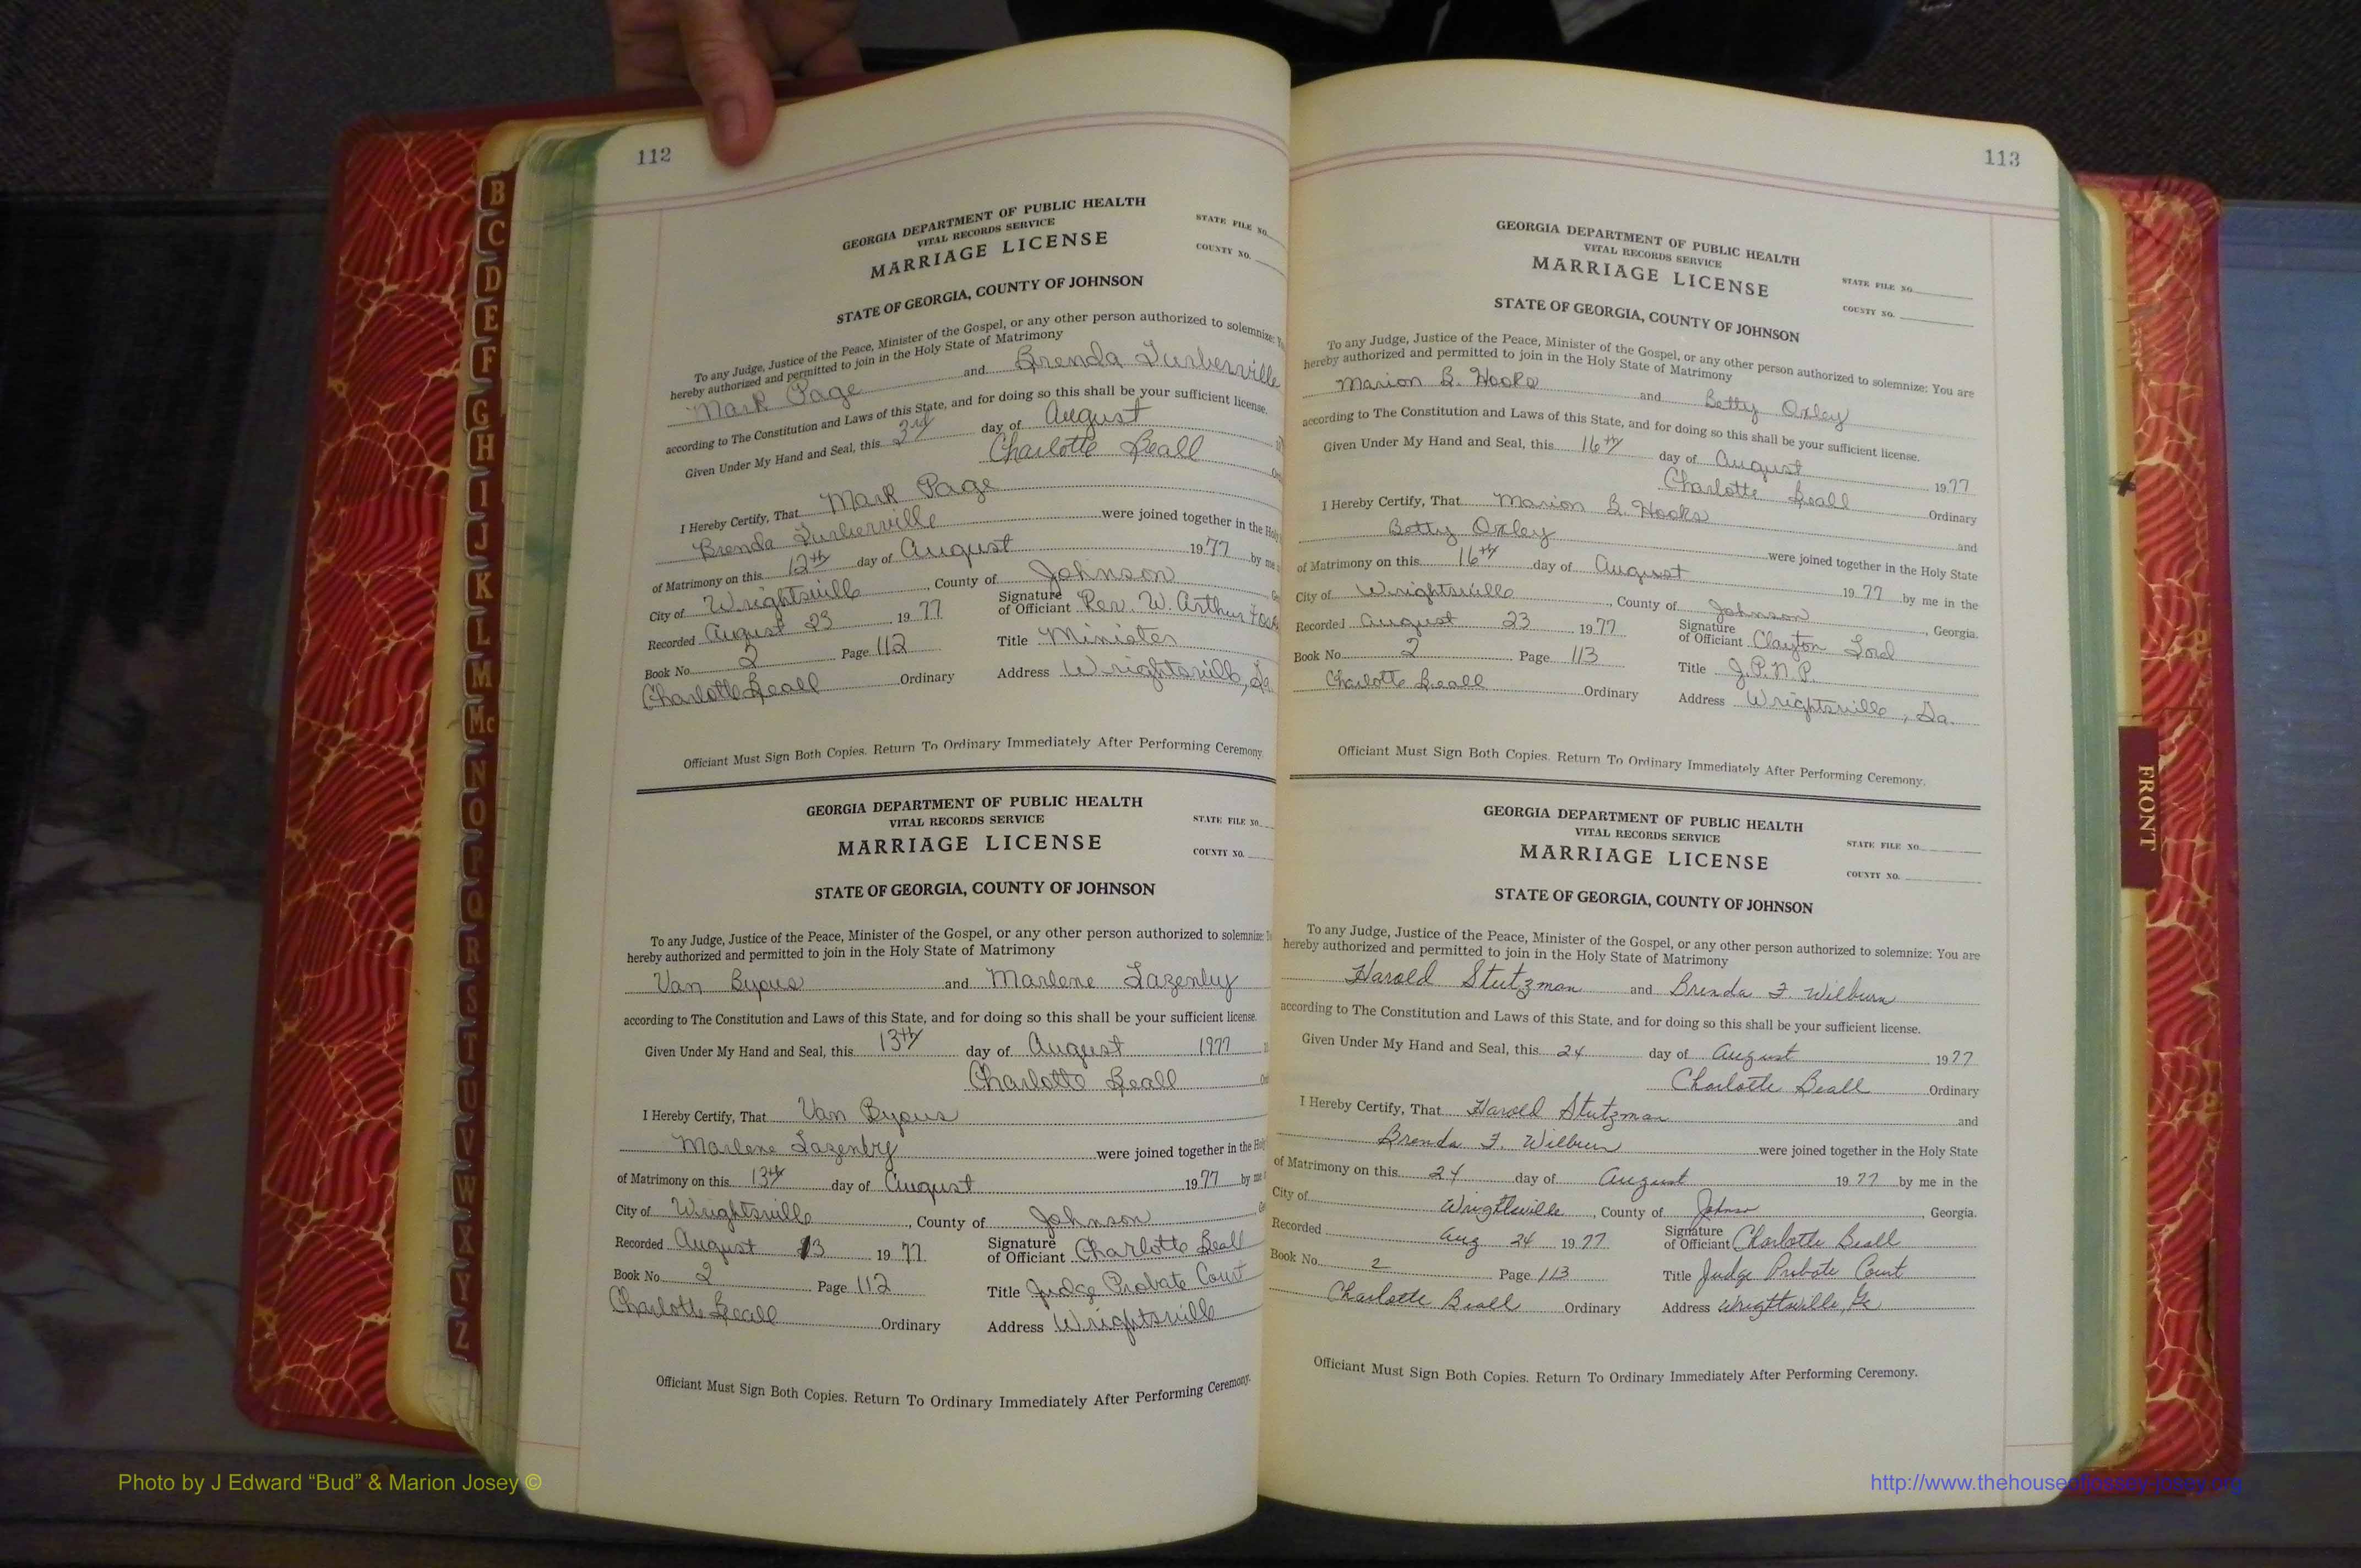 112
GEORGIA DEPARTMENT OF PUBLIC HEALTH
VITAL RECORDS SERVICE
MARRIAGE LICENSE
STATE FILE NO.
COUNTY NO.
STATE OF GEORGIA, COUNTY OF JOHNSON
To any Judge, Justice of the Peace, Minister of the Gospel, or any other person authorized to solemnize:
hereby authorized and permitted to join in the Holy State of Matrimony
Mark Page and Brenda Turberville
according to The Constitution and Laws of this State, and for doing so this shall be your sufficient license.
Given Under My Hand and Seal, this 3rd day of August
Charlotte Beall
I Hereby Certify, That Mark Page
Brenda Turberville were joined together in the Holy
of Matrimony on this 12th day of August 1977 by me
City of Wrightsville, County of Johnson
Recorded August 23 1977 Signature of Officiant Rev. W. Arthur
Book No. 2 Page 112 Title Minister
Charlotte Beall Ordinary Address Wrightsville, Ga.
Officiant Must Sign Both Copies. Return To Ordinary Immediately After Performing Ceremony.
GEORGIA DEPARTMENT OF PUBLIC HEALTH
VITAL RECORDS SERVICE
MARRIAGE LICENSE
STATE FILE NO.
COUNTY NO.
STATE OF GEORGIA, COUNTY OF JOHNSON
To any Judge, Justice of the Peace, Minister of the Gospel, or any other person authorized to solemnize:
hereby authorized and permitted to join in the Holy State of Matrimony
Van Byous and Marlene Lazenby
according to The Constitution and Laws of this State, and for doing so this shall be your sufficient license.
Given Under My Hand and Seal, this 13th day of August 1977
Charlotte Beall
I Hereby Certify, That Van Byous
Marlene Lazenby were joined together in the Holy
of Matrimony on this 13th day of August 1977 by me
City of Wrightsville, County of Johnson
Recorded August 13 1977 Signature of Officiant Charlotte Beall
Book No. 2 Page 112 Title Judge Probate Court
Charlotte Beall Ordinary Address Wrightsville
Officiant Must Sign Both Copies. Return To Ordinary Immediately After Performing Ceremony.
113
GEORGIA DEPARTMENT OF PUBLIC HEALTH
VITAL RECORDS SERVICE
MARRIAGE LICENSE
STATE FILE NO.
COUNTY NO.
STATE OF GEORGIA, COUNTY OF JOHNSON
To any Judge, Justice of the Peace, Minister of the Gospel, or any other person authorized to solemnize: You are
hereby authorized and permitted to join in the Holy State of Matrimony
Marion B. Hooks and Betty Oxley
according to The Constitution and Laws of this State, and for doing so this shall be your sufficient license.
Given Under My Hand and Seal, this 16th day of August 1977
Charlotte Beall Ordinary
I Hereby Certify, That Marion B. Hooks and
Betty Oxley were joined together in the Holy State
of Matrimony on this 16th day of August 1977 by me in the
City of Wrightsville, County of Johnson, Georgia.
Recorded August 23 1977 Signature of Officiant Clayton Lord
Book No. 2 Page 113 Title J.P.N.P.
Charlotte Beall Ordinary Address Wrightsville, Ga.
Officiant Must Sign Both Copies. Return To Ordinary Immediately After Performing Ceremony.
GEORGIA DEPARTMENT OF PUBLIC HEALTH
VITAL RECORDS SERVICE
MARRIAGE LICENSE
STATE FILE NO.
COUNTY NO.
STATE OF GEORGIA, COUNTY OF JOHNSON
To any Judge, Justice of the Peace, Minister of the Gospel, or any other person authorized to solemnize: You are
hereby authorized and permitted to join in the Holy State of Matrimony
Harold Stutzman and Brenda F. Wilburn
according to The Constitution and Laws of this State, and for doing so this shall be your sufficient license.
Given Under My Hand and Seal, this 24 day of August 1977
Charlotte Beall Ordinary
I Hereby Certify, That Harold Stutzman and
Brenda F. Wilburn were joined together in the Holy State
of Matrimony on this 24 day of August 1977 by me in the
City of Wrightsville, County of Johnson, Georgia.
Recorded Aug 24 1977 Signature of Officiant Charlotte Beall
Book No. 2 Page 113 Title Judge Probate Court
Charlotte Beall Ordinary Address Wrightsville, Ga
Officiant Must Sign Both Copies. Return To Ordinary Immediately After Performing Ceremony.
B
C
D
E
F
G
H
I
J
K
L
M
Mc
N
O
P
Q
R
S
T
U
V
W
X
Y
Z
FRONT
Photo by J Edward “Bud” & Marion Josey ©
http://www.thehouseofjossey-josey.org